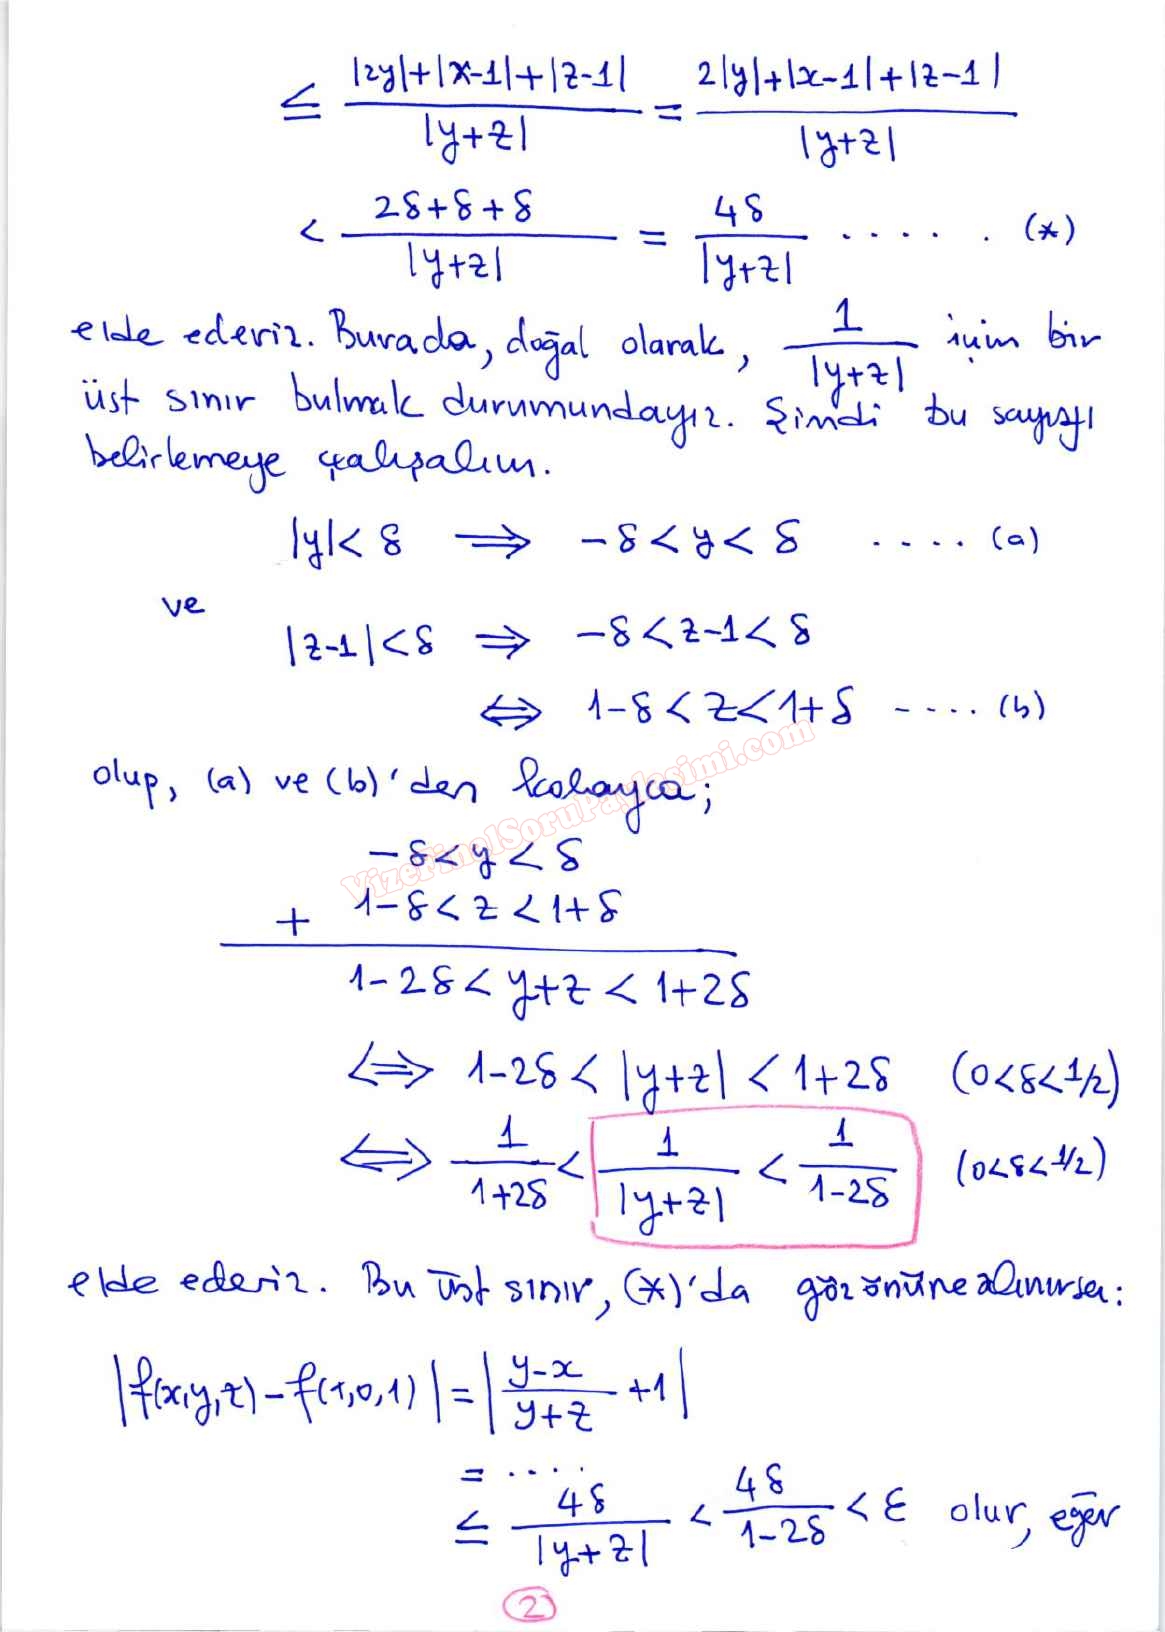 ≤ |2y|+|x-1|+|z-1| / |y+z| = 2|y|+|x-1|+|z-1| / |y+z|
< 2δ+δ+δ / |y+z| = 4δ / |y+z| ..... (*)
elde ederiz. Burada, doğal olarak, 1 / |y+z| için bir
üst sınır bulmak durumundayız. Şimdi bu sayıyı
belirlemeye çalışalım.
|y|<δ ⟹ -δ<y<δ .... (a)
ve
|z-1|<δ ⟹ -δ<z-1<δ
⟺ 1-δ<z<1+δ .... (b)
olup, (a) ve (b)'den kolayca;
-δ<y<δ
+ 1-δ<z<1+δ
1-2δ<y+z<1+2δ
⟺ 1-2δ<|y+z|<1+2δ (0<δ<1/2)
⟺ 1 / 1+2δ < 1 / |y+z| < 1 / 1-2δ (0<δ<1/2)
elde ederiz. Bu üst sınır, (*)'da gözönüne alınırsa:
|f(x,y,z)-f(1,0,1)| = | y-x / y+z +1|
= ....
≤ 4δ / |y+z| < 4δ / 1-2δ < ε olur, eğer
2
VizeFinalSoruPaylasimi.com